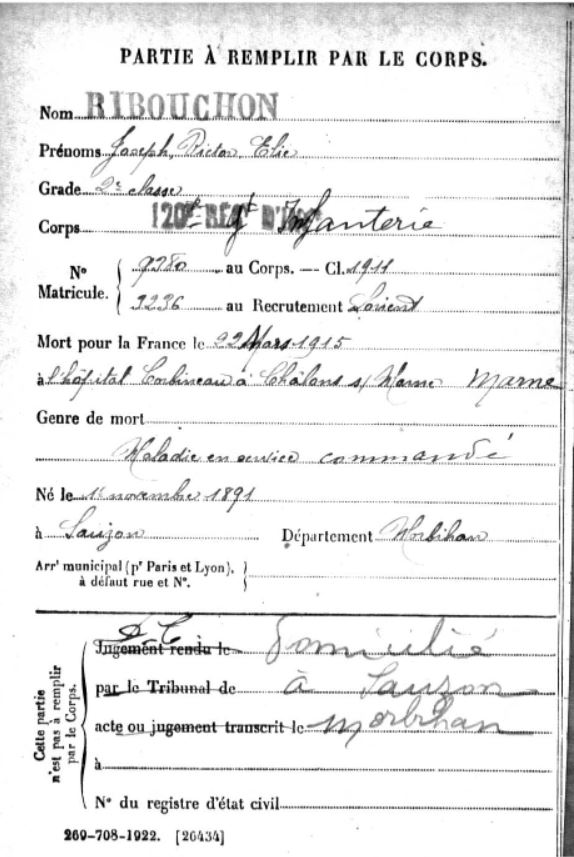 PARTIE À REMPLIR PAR LE CORPS.
Nom RIBOUCHON
Prénoms Joseph, Victor, Elie
Grade 2e classe
Corps 120e RÉGt D'INF Rgt Infanterie
No Matricule. 9780 au Corps. — Cl. 1911
3236 au Recrutement Lorient
Mort pour la France le 22 Mars 1915
à l'hôpital Corbineau à Châlons s/ Marne Marne
Genre de mort
Maladie en service commandé
Né le novembre 1891
à Sauzon Département Morbihan
Arrt municipal (pr Paris et Lyon), à défaut rue et No.
Cette partie n'est pas à remplir par le Corps.
Jugement rendu le domicilié
par le Tribunal de à Sauzon
acte ou jugement transcrit le Morbihan
à
No du registre d'état civil
269-708-1922. [26434]